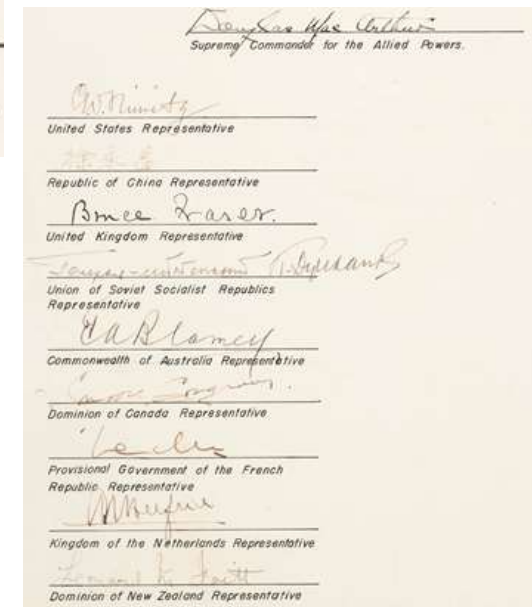 Douglas MacArthur
Supreme Commander for the Allied Powers.
C.W. Nimitz
United States Representative
徐永昌
Republic of China Representative
Bruce Fraser.
United Kingdom Representative
Union of Soviet Socialist Republics
Representative
T.A. Blamey
Commonwealth of Australia Representative
Dominion of Canada Representative
Leclerc
Provisional Government of the French
Republic Representative
Kingdom of the Netherlands Representative
Leonard M. Isitt
Dominion of New Zealand Representative